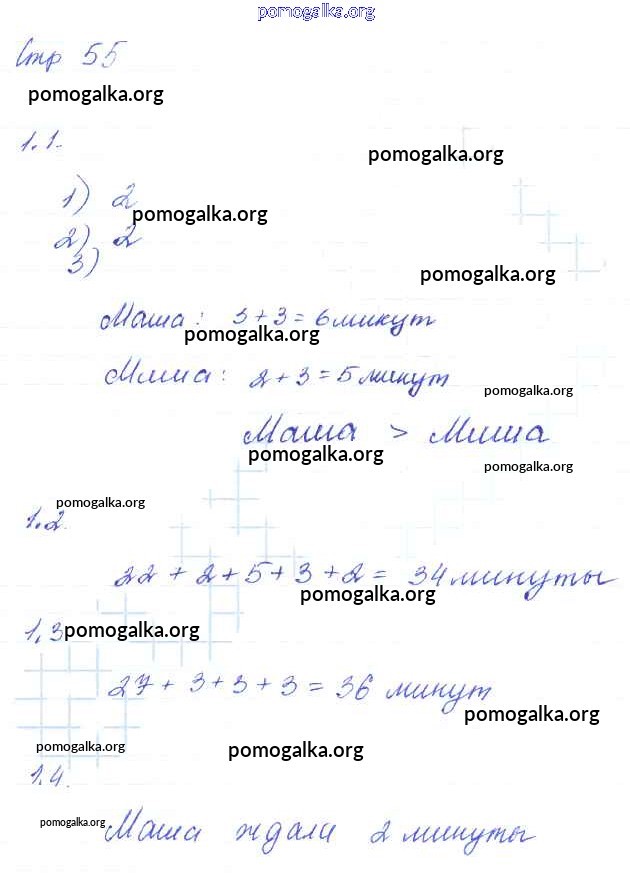 pomogalka.org
Стр 55
pomogalka.org
1.1.
pomogalka.org
1) 2
pomogalka.org
2) 2
3)
pomogalka.org
Маша: 3+3=6 минут
pomogalka.org
Миша: 2+3=5 минут
pomogalka.org
Маша > Миша
pomogalka.org
pomogalka.org
pomogalka.org
1.2.
22+2+5+3+2= 34 минуты
pomogalka.org
1.3
pomogalka.org
27+3+3+3=36 минут
pomogalka.org
pomogalka.org
pomogalka.org
1.4.
pomogalka.org
Маша ждала 2 минуты